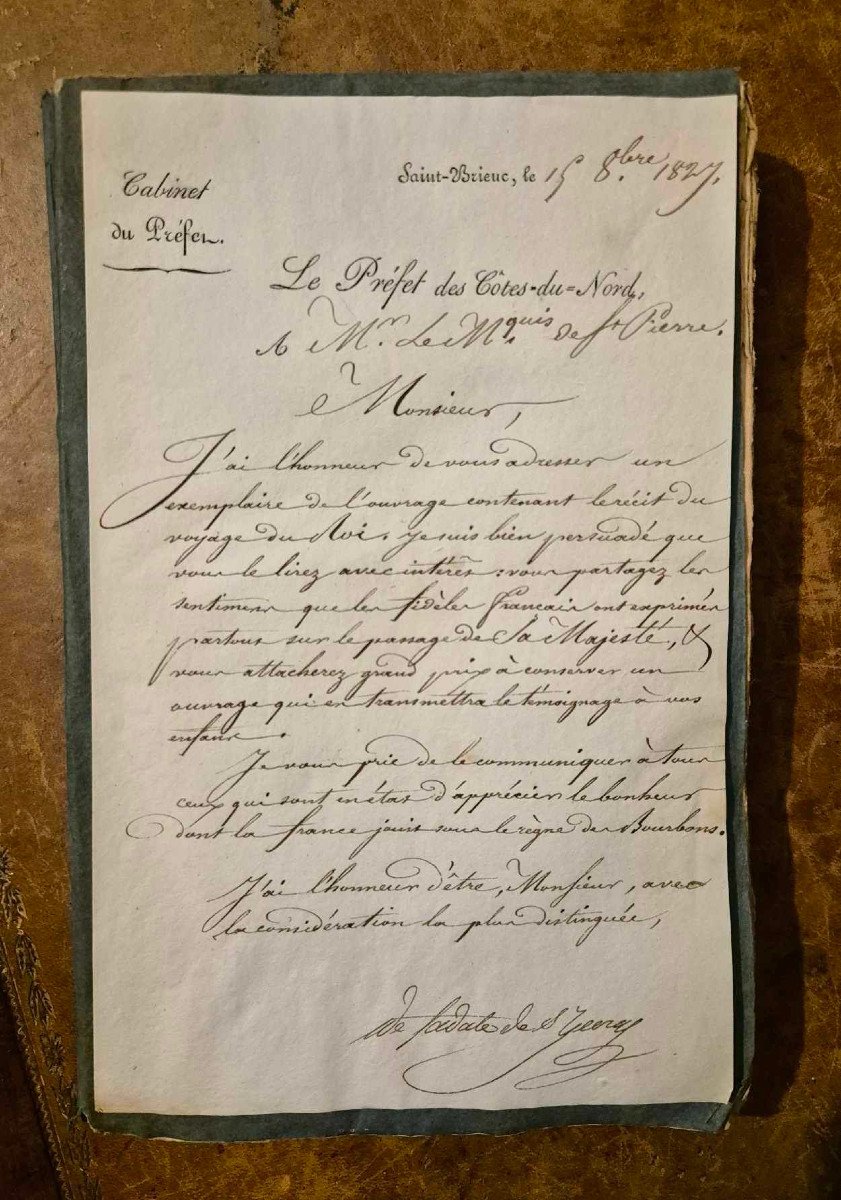 Cabinet
du Préfet.
Saint-Brieuc, le 15 8.bre 1827.
Le Préfet des Côtes-du=Nord,
A Mr. Le Mquis. de St Pierre.
Monsieur,
J'ai l'honneur de vous adresser un
exemplaire de l'ouvrage contenant le récit du
voyage du Roi. Je suis bien persuadé que
vous le lirez avec intérêt : vous partagez les
sentimens que les fidèles français ont exprimés
partout sur le passage de Sa Majesté, &
vous attacherez grand prix à conserver un
ouvrage qui en transmettra le témoignage à vos
enfans.
Je vous prie de le communiquer à tous
ceux qui sont en état d'apprécier le bonheur
dont la france jouit sous le règne des Bourbons.
J'ai l'honneur d'être, Monsieur, avec
la considération la plus distinguée,
de